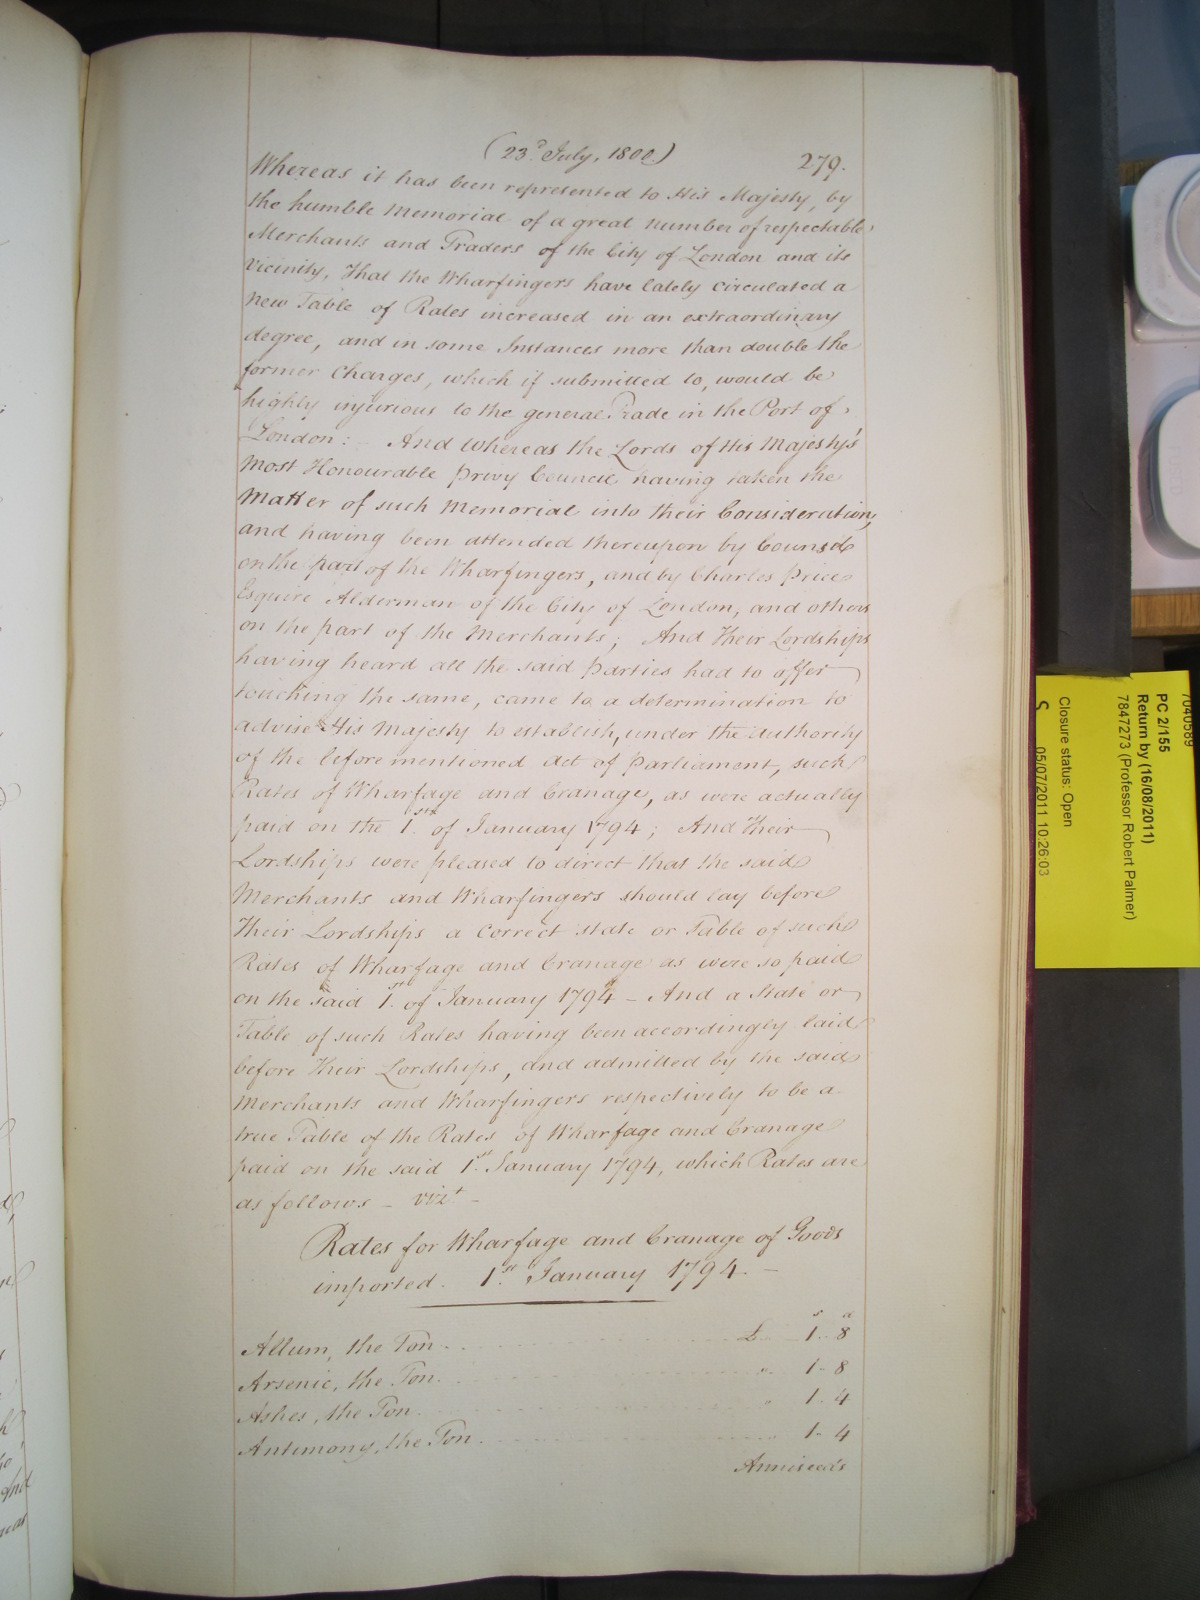 (23.d July, 1800)
279.
Whereas it has been represented to His Majesty, by
the humble Memorial of a great number of respectable
Merchants and Traders of the City of London and its
Vicinity, That the Wharfingers have lately circulated a
new Table of Rates increased in an extraordinary
degree, and in some Instances more than double the
former Charges, which if submitted to, would be
highly injurious to the general Trade in the Port of
London: And Whereas the Lords of His Majesty's
Most Honourable Privy Council having taken the
Matter of such Memorial into their Consideration,
and having been attended thereupon by Counsel
on the part of the Wharfingers, and by Charles Price
Esquire Alderman of the City of London, and others
on the part of the Merchants; And Their Lordships
having heard all the said Parties had to offer
touching the same, came to a determination to
advise His Majesty to establish, under the Authority
of the before mentioned Act of Parliament, such
Rates of Wharfage and Cranage, as were actually
paid on the 1.st of January 1794; And Their
Lordships were pleased to direct that the said
Merchants and Wharfingers should lay before
Their Lordships a correct state or Table of such
Rates of Wharfage and Cranage as were so paid
on the said 1.st of January 1794 - And a State or
Table of such Rates having been accordingly laid
before Their Lordships, and admitted by the said
Merchants and Wharfingers respectively to be a
true Table of the Rates of Wharfage and Cranage
paid on the said 1.st January 1794, which Rates are
as follows - vizt -
Rates for Wharfage and Cranage of Goods
imported. 1.st January 1794. -
s d
Allum, the Ton £ 1.. 8
Arsenic, the Ton. " 1.. 8
Ashes, the Ton " 1.. 4
Antimony, the Ton 1.. 4
Anniseeds
PC 2/155
Return by (16/08/2011)
7847273 (Professor Robert Palmer)
Closure status: Open
S 05/07/2011 10:26:03